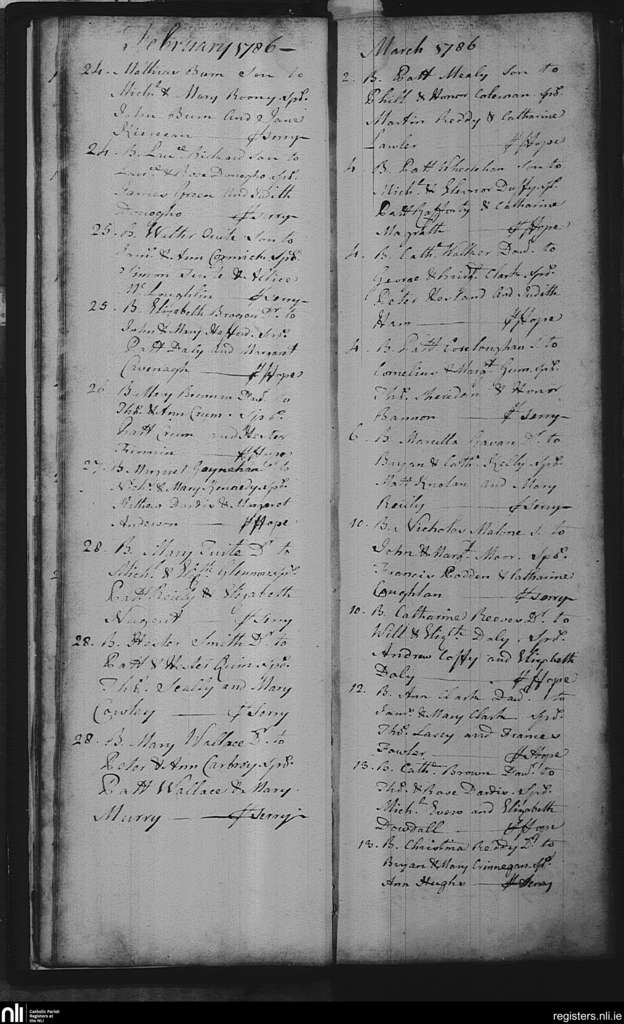 February 1786 —
24. Mathias Burn Son to
Mich.l & Mary Roony Sps.
John Burn and Jane
Kiernan — Jf Serry —
24. B. Lau.ce Richard Son to
Lau.ce & Rose Donogho Sps.
James Green and Edith
Donogho Jf Serry
25. B. Walter Tuite Son to
& Ann Cormick Sps.
Simon Tuite & Alice
Mc Loughlin — Jf Serry —
25. B. Elizabeth Brogan D.r to
John & Mary Sps.
Patt Daly and Margaret
Cavenagh — Jf Hope
26. B. Mary Brennan Dau. to
Tho.s & Ann Crum Sps.
Patt Crum and Hester
Jf Hope
27. B. Margret D.r to
Nich.s & Mary Kennedy Sps.
Arthur Dardis & Margaret
Anderson — Jf Hope
28. B. Mary Tuite D.r to
Mich.l & Sps.
Patt Reily & Elizabeth
Nugent — Jf Serry
28. B. Hester Smith D.r to
Patt & Hester Quin Sps.
Tho.s Scally and Mary
Cowley — Jf Serry
28. B. Mary Wallace D.r to
Peter & Ann Cartroy Sps.
Patt Wallace & Mary
Murry — Jf Serry
March 1786
2. B. Patt Mealy Son to
Phill & Honor Coleman Sps.
Martin Reddy & Catharine
Lawler Jf Hope
4. B. Patt Wheelahan Son to
Mich.l & Elenor Duffy Sps.
Patt Rafforty & Catharine
Magrath — Jf Hope
4. B. Cath. Walker Dau. to
George & Bridt. Clark Sps.
Peter and Judith
Ham — Jf Hope
4. B. Patt Conloughan S. to
Cornelius & Marg.t Gunn Sps.
Tho.s Sheridan & Honor
Bannon — Jf Serry —
6. B. Marcella Gavan D.r to
Bryan & Cath. Reilly Sps.
Matt Knolan and Mary
Reilly — Jf Serry —
10. B. Nicholas Malone S. to
John & Marg.t Moor Sps.
Francis Rodden & Catharine
Coughlan — Jf Serry —
10. B. Catharine Reeves D.r to
Will & Eliz.th Daly Sps.
Andrew Coffy and Elizabeth
Daly — Jf Hope
12. B. Ann Clark Dau. to
Jam.s & Mary Clark Sps.
Tho.s Lacey and Frances
Fowler — Jf Hope
13. B. Cath. Brown Dau. to
Tho.s & Rose Dardis Sps.
Mich.l Evers and Elizabeth
Dowdall — Jf Hope
13. B. Christina Reddy D.r to
Bryan & Mary Crinnegan Sps.
Ann Hughs — Jf Serry
nli
Catholic Parish
Registers at
the NLI
registers.nli.ie